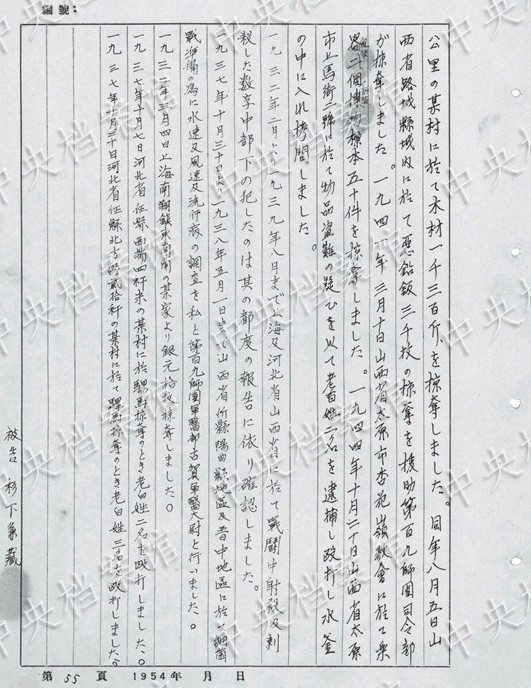 編號：
公里の某村に於て木材一千三百斤を掠奪しました。同年八月五日山
西省路城縣城内に於て亜鉛鈑三千枚の掠奪を援助第百九師團司令部
が掠奪しました。一九四 年三月十日山西省太原市杏花嶺教會に於て
二個 標本五十件を掠奪しました。一九四四年十月二十日山西省太原
市上馬街二號に於て物品盗難の疑ひを以て老百姓二名を逮捕し毆打し水釜
の中に入れ拷問しました。
一九三二年二月より一九三九年八月まで上海及河北省山西省に於て戰鬪中射殺及刺
殺した数字中部下の犯したのは其の都度の報告に依り確認しました。
一九三七年十月三十日より一九三八年五月一日まで山西省忻縣陽曲縣地區及晋中地區に於て細菌
戰準備の為に水速及風速及流行病の調查を私と第百九師團軍醫部古賀軍醫大尉と行いました。
一九三二年三月四日上海南翔鎮東南間の某家より銀元拾枚掠奪しました。
一九三七年十月七日河北省任縣西南四粁米の某村に於て騾馬掠奪のとき老百姓二名を毆打しました。
一九三七年十月二十日河北省任縣北方約貳拾粁の某村に於て騾馬掠奪のとき老百姓三名を毆打しました
被告 杉下兼藏
第 55 頁 1954年 月 日
中央档案馆